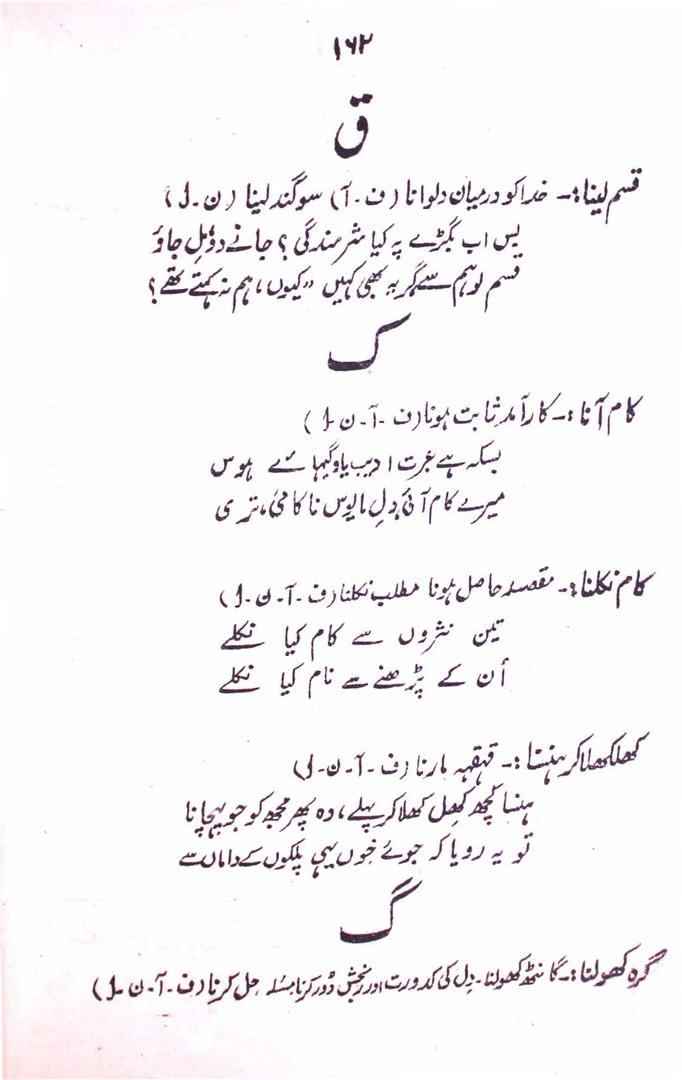 ۱۶۲
ق
قسم لینا:۔ خدا کو درمیان دلوانا (ف۔آ) سوگند لینا (ن۔ل)
بس اب بگڑے پہ کیا شرمندگی؟ جانے دو، مل جاؤ
قسم لو ہم سے گر یہ بھی کہیں "کیوں، ہم نہ کہتے تھے؟
ک
کام آنا:۔ کار آمد ثابت ہونا (ف۔آ۔ن۔ل)
بسکہ ہے عبرت ادیب یاوگیہائے ہوس
میرے کام آئی دلِ مایوس ناکامی، تری
کام نکلنا:۔ مقصد حاصل ہونا مطلب نکلنا (ف۔آ۔ن۔ل)
تین نثروں سے کام کیا نکلے
اُن کے پڑھنے سے نام کیا نکلے
کھلکھلا کر ہنسنا:۔ قہقہہ مارنا (ف۔آ۔ن۔ل)
ہنسا کچھ کھل کھلا کر پہلے، وہ پھر مجھ کو جو پہچانا
تو یہ رویا کہ جوئے خوں بہی پلکوں کے داماں سے
گ
گرہ کھولنا:۔ گانٹھ کھولنا۔ دل کی کدورت اور رنجش دُور کرنا مسئلہ حل کرنا (ف۔آ۔ن۔ل)